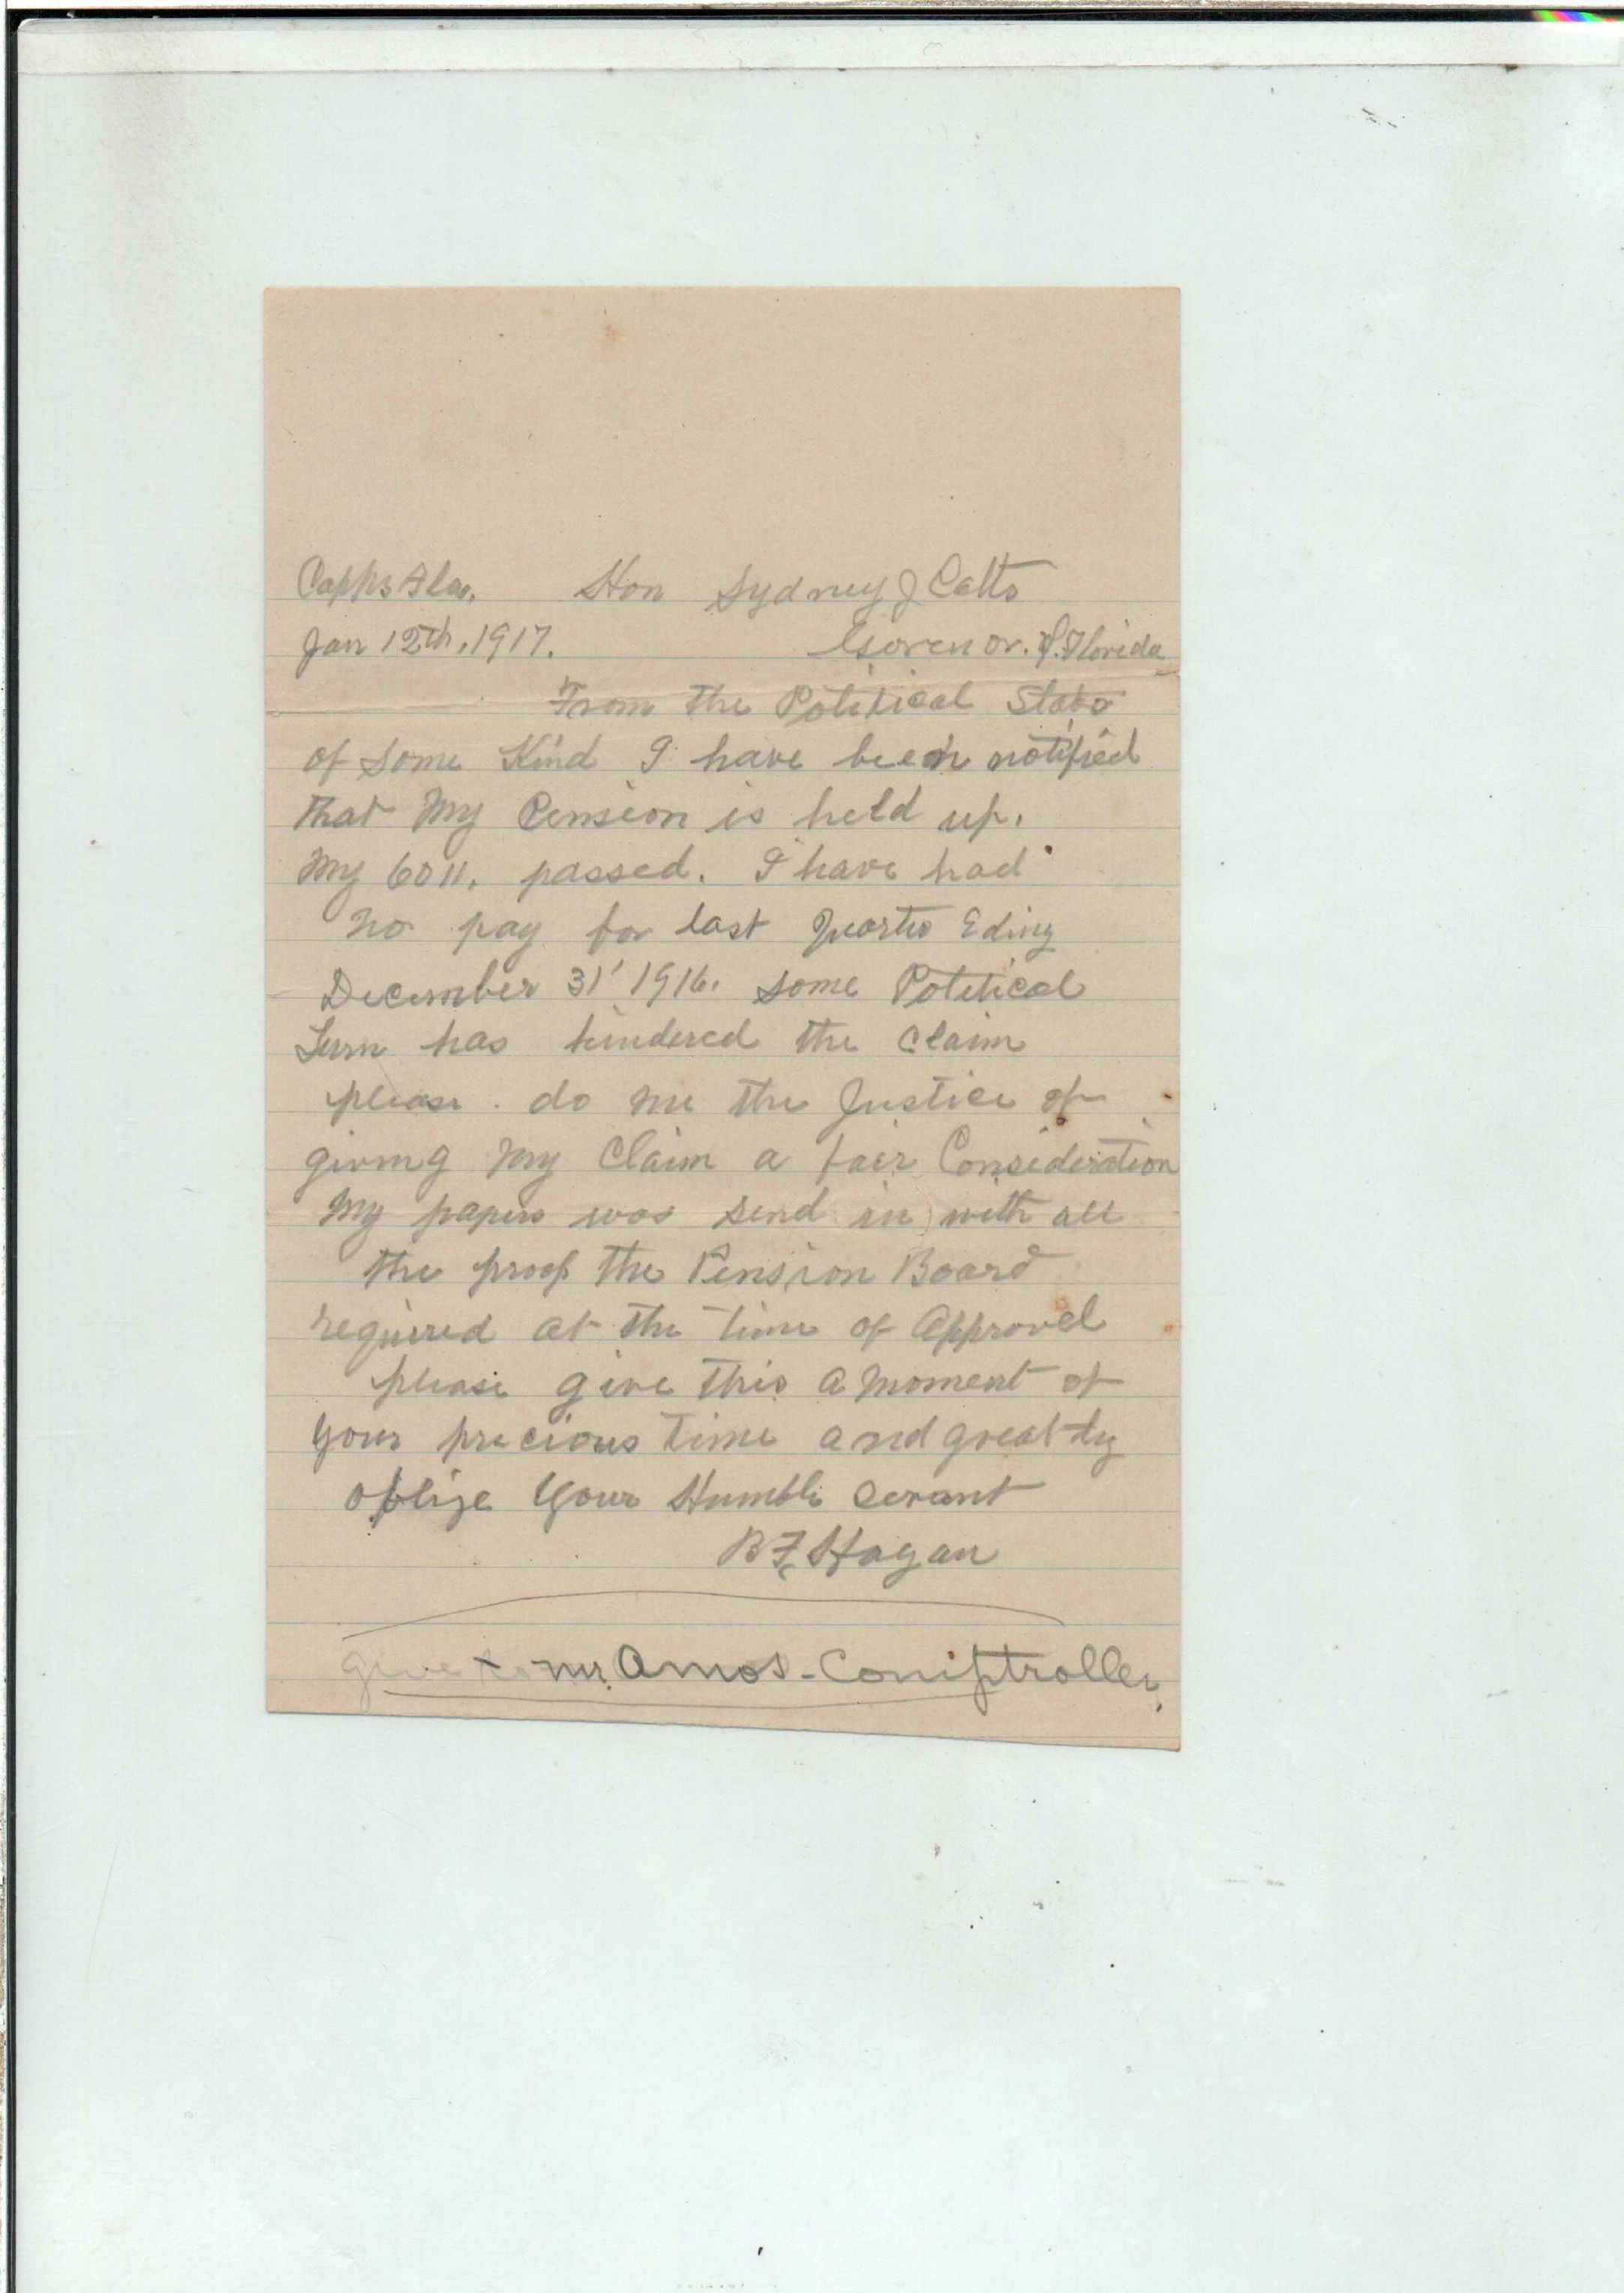 Capps Fla. Hon Sydney J Catts
Jan 12th, 1917. Govenor. of. Florida
From the Political State
of some Kind I have been notified
that My Pension is held up.
My 6011. passed. I have had
no pay for last Quarter Eding
December 31' 1916. some Political
Turn has hindered the Claim
please. do me the Justice of
giving My Claim a fair Consideration
My papers was send in with all
the proof the Pension Board
required at the time of Approvel
please give this a moment of
your precious time and greatly
oblige Your Humble Cervant
B F Hagan
give to mr. Amos - Comptroller.